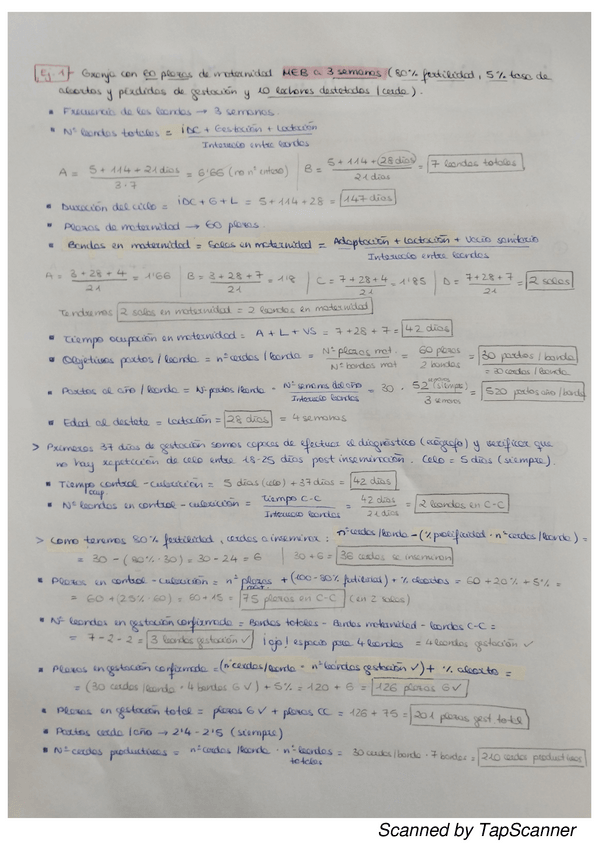 Ej. 1 - Granja con 60 plazas de maternidad MEB a 3 semanas (80% fertilidad, 5% tasa de
abortos y pérdidas de gestación y 10 lechones destetados / cerda).
• Frecuencia de las bandas → 3 semanas.
• Nº bandas totales = iDC + Gestación + Lactación / Intervalo entre bandas
A = 5 + 114 + 21 días / 3·7 = 6'66 (no nº entero) | B = 5 + 114 + (28 días) / 21 días = 7 bandas totales
• Duración del ciclo = iDC + G + L = 5 + 114 + 28 = 147 días
• Plazas de maternidad → 60 plazas.
• Bandas en maternidad = Salas en maternidad = Adaptación + Lactación + Vacío sanitario / Intervalo entre bandas
A = 3 + 28 + 4 / 21 = 1'66 | B = 3 + 28 + 7 / 21 = 1'8 | C = 7 + 28 + 4 / 21 = 1'85 | D = 7 + 28 + 7 / 21 = 2 salas
Tendremos 2 salas en maternidad = 2 bandas en maternidad
• Tiempo ocupación en maternidad = A + L + VS = 7 + 28 + 7 = 42 días
• Objetivos partos / banda = nº cerdas / banda = Nº plazas mat. / Nº bandas mat = 60 plazas / 2 bandas = 30 partos / banda
= 30 cerdas / banda
• Partos al año / banda = Nº partos / banda · Nº semanas del año / Intervalo bandas = 30 · 52 (siempre) / 3 semanas = 520 partos año / banda
• Edad al destete = lactación = 28 días = 4 semanas
> Primeros 37 días de gestación somos capaces de efectuar el diagnóstico (ecógrafo) y verificar que
no hay repetición de celo entre 18-25 días post inseminación. Celo = 5 días (siempre).
• Tiempo ocup. control - cubrición = 5 días (celo) + 37 días = 42 días
• Nº bandas en control - cubrición = Tiempo C-C / Intervalo bandas = 42 días / 21 días = 2 bandas en C-C
> Como tenemos 80% fertilidad, cerdas a inseminar: nº cerdas / banda - (% prolificidad · nº cerdas / banda) =
= 30 - (80% · 30) = 30 - 24 = 6 | 30 + 6 = 36 cerdas se inseminan
• Plazas en control - cubrición = nº plazas mat + (100 - 80% fertilidad) + % abortos = 60 + 20% + 5% =
= 60 + (25% · 60) = 60 + 15 = 75 plazas en C-C (en 2 salas)
• Nº bandas en gestación confirmada = Bandas totales - Bandas maternidad - bandas C-C =
= 7 - 2 - 2 = 3 bandas gestación ✓ ¡ojo! espacio para 4 bandas = 4 bandas gestación ✓
• Plazas en gestación confirmada = (nº cerdas / banda · nº bandas gestación ✓) + % aborto =
= (30 cerdas / banda · 4 bandas G✓) + 5% = 120 + 6 = 126 plazas G✓
• Plazas en gestación total = plazas G✓ + plazas CC = 126 + 75 = 201 plazas gest. total
• Partos cerda / año → 2'4 - 2'5 (siempre)
• Nº cerdas productivas = nº cerdas / banda · nº bandas totales = 30 cerdas / banda · 7 bandas = 210 cerdas productivas
Scanned by TapScanner